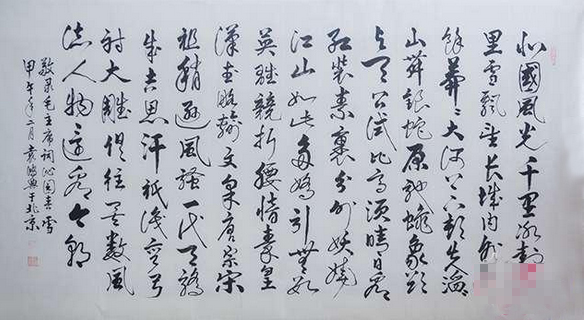 北國風光千里冰封
里雪飄望长城内外
餘莽莽大河上下頓失滔
山舞銀蛇原馳蠟象欲
与天公試比高須晴日看
红装素裹分外妖娆
江山如此多嬌引無數
英雄競折腰惜秦皇
漢武略輸文采唐宗宋
祖稍遜風騷一代天驕
成吉思汗祇識彎弓
射大雕俱往矣數風
流人物還看今朝
敬录毛主席詞沁園春雪
甲午年二月袁于北京